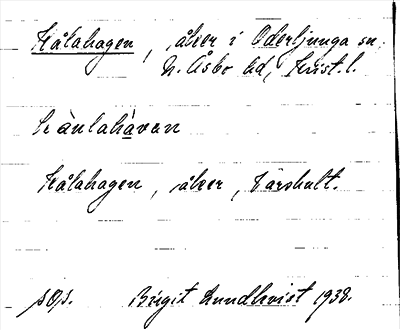 Kålahagen, åker i Oderljunga sn,
N. Åsbo hd, Krist. l.
kàulahàvan
Kålahagen, åker, Värshult.
sOs. Birgit Lundkvist 1938.